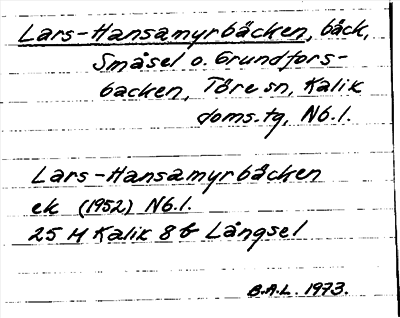 Lars-Hansamyrbäcken, bäck,
Småsel o. Grundfors-
backen, Töre sn, Kalix
doms.tg, Nb.l.
Lars-Hansamyrbäcken
ek (1952) Nb.l.
25 M Kalix 8b Långsel
B.A.L. 1973.